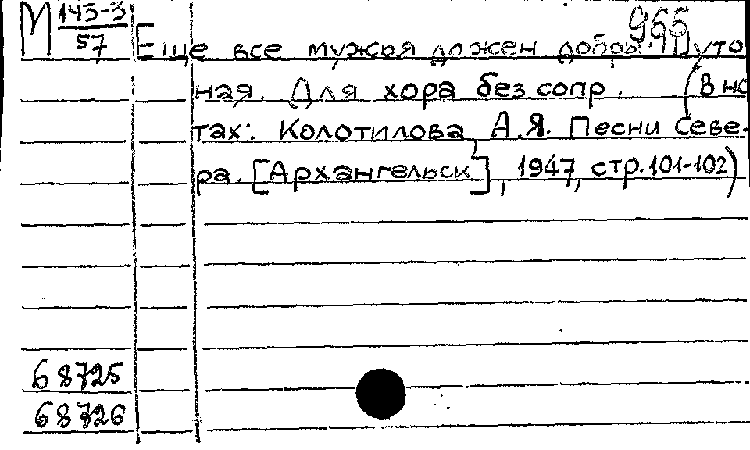 М 143-3/57
955
Еще все мужья до жен добры. Шуто
ная. Для хора без сопр. (В но
тах: Колотилова, А.Я. Песни Севе-
ра. [Архангельск], 1947, стр. 101-102)
68725
68726